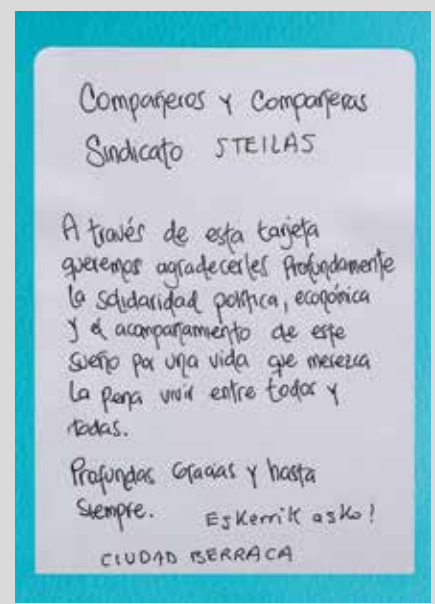 Compañeros y Compañeras
Sindicato STEILAS
A través de esta tarjeta
queremos agradecerles Profundamente
la solidaridad política, económica
y el acompañamiento de este
sueño por una vida que merezca
la pena vivir entre todos y
todas.
Profundas Gracias y hasta
siempre.
Eskerrik asko!
CIUDAD BERRACA